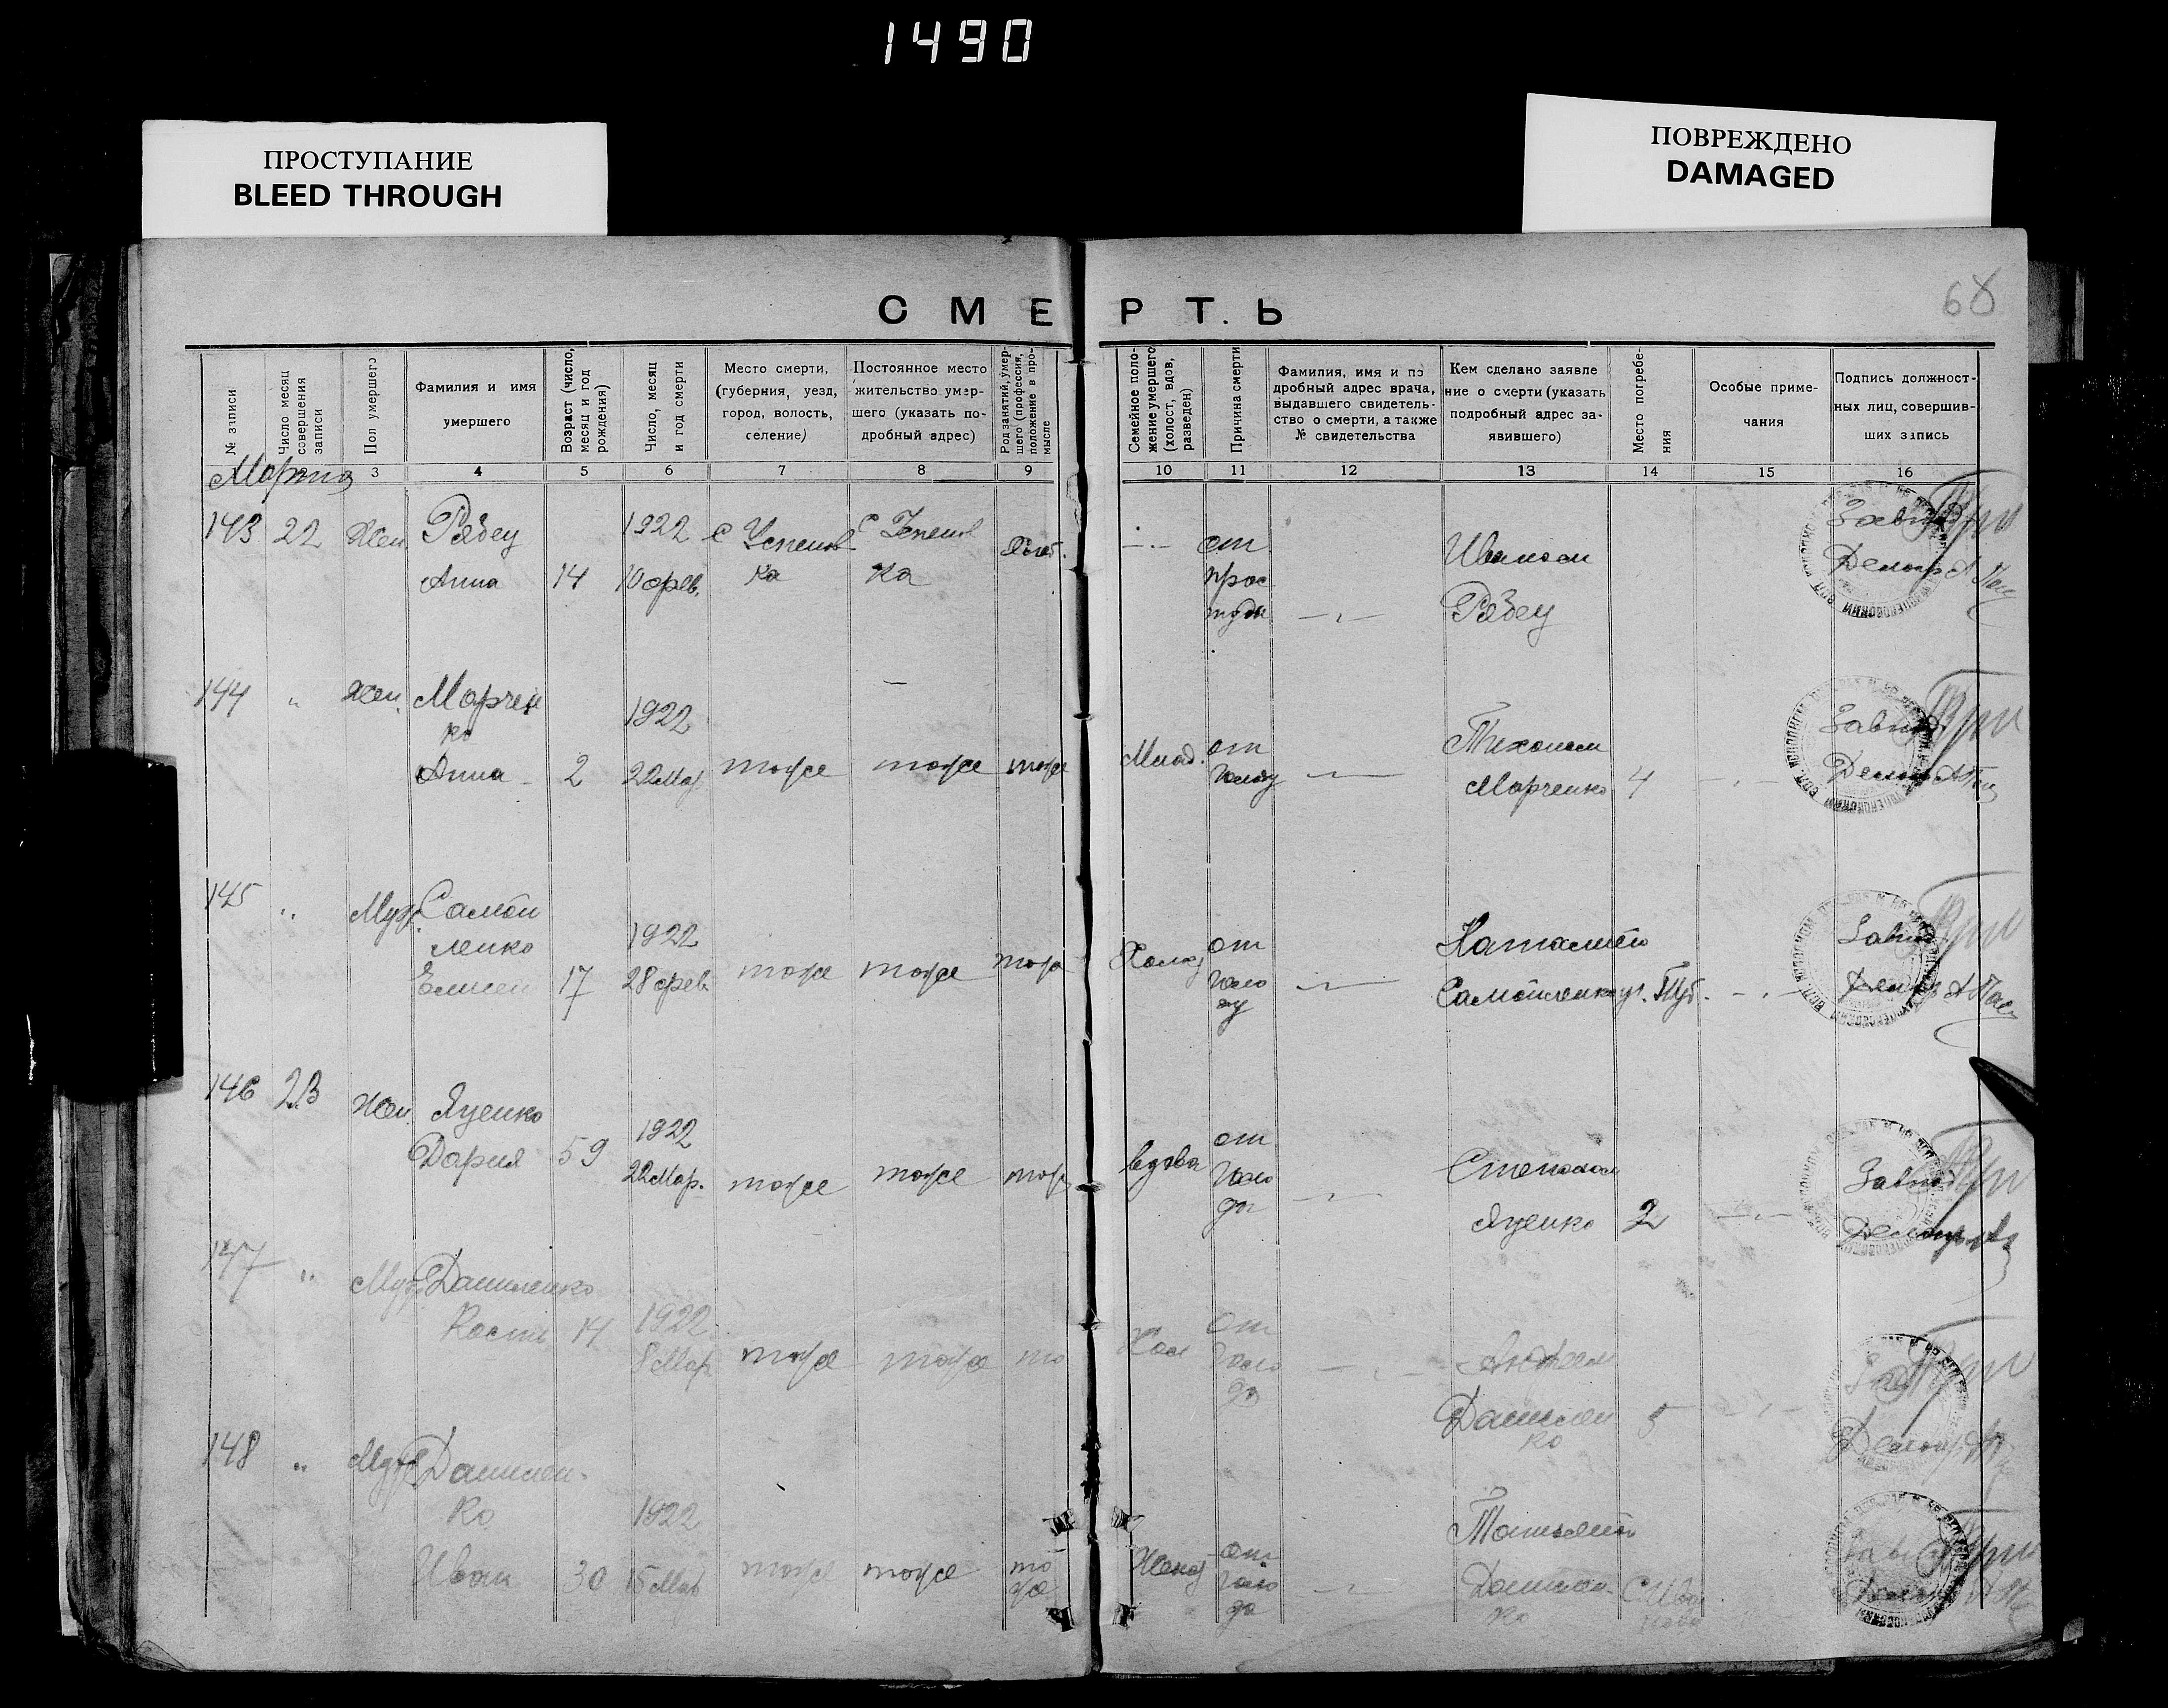 1490
ПРОСТУПАНИЕ
BLEED THROUGH
ПОВРЕЖДЕНО
DAMAGED
68
СМЕРТЬ
№ записи
Число месяц совершения записи
Пол умершего
Фамилия и имя умершего
Возраст (число, месяц и год рождения)
Число, месяц и год смерти
Место смерти, (губерния, уезд, город, волость, селение)
Постоянное место жительство умершего (указать подробный адрес)
Род занятий, умершего (профессия, положение в промысле
Семейное положение умершего (холост, вдов, разведен)
Причина смерти
Фамилия, имя и подробный адрес врача, выдавшего свидетельство о смерти, а также № свидетельства
Кем сделано заявление о смерти (указать подробный адрес заявившего)
Место погребения
Особые примечания
Подпись должностных лиц, совершивших запись
3 4 5 6 7 8 9 10 11 12 13 14 15 16
Марта
143 22 Жен. Рябец Анна 14 1922 10 фев. с Успеновка с Успеновка от простуды Иваном Рябец
144 " Жен. Марченко Анна 2 1922 22 Мар тоже тоже тоже Млад. от голоду Тихоном Марченко 4
145 " Муж. Самойленко Елисей 17 1922 28 фев. тоже тоже тоже Холос от голоду Наталией Самойленко
146 23 Жен. Яценко Дария 59 1922 22 Мар. тоже тоже тоже вдова от голода Степаном Яценко 2
147 " Муж Даниленко 14 1922 8 Мар. тоже тоже то Хол от голода Даниленко 5
148 " Муж Даниленко Иван 30 1922 15 Мар тоже тоже тоже Женат от голода Татьяной Даниленко